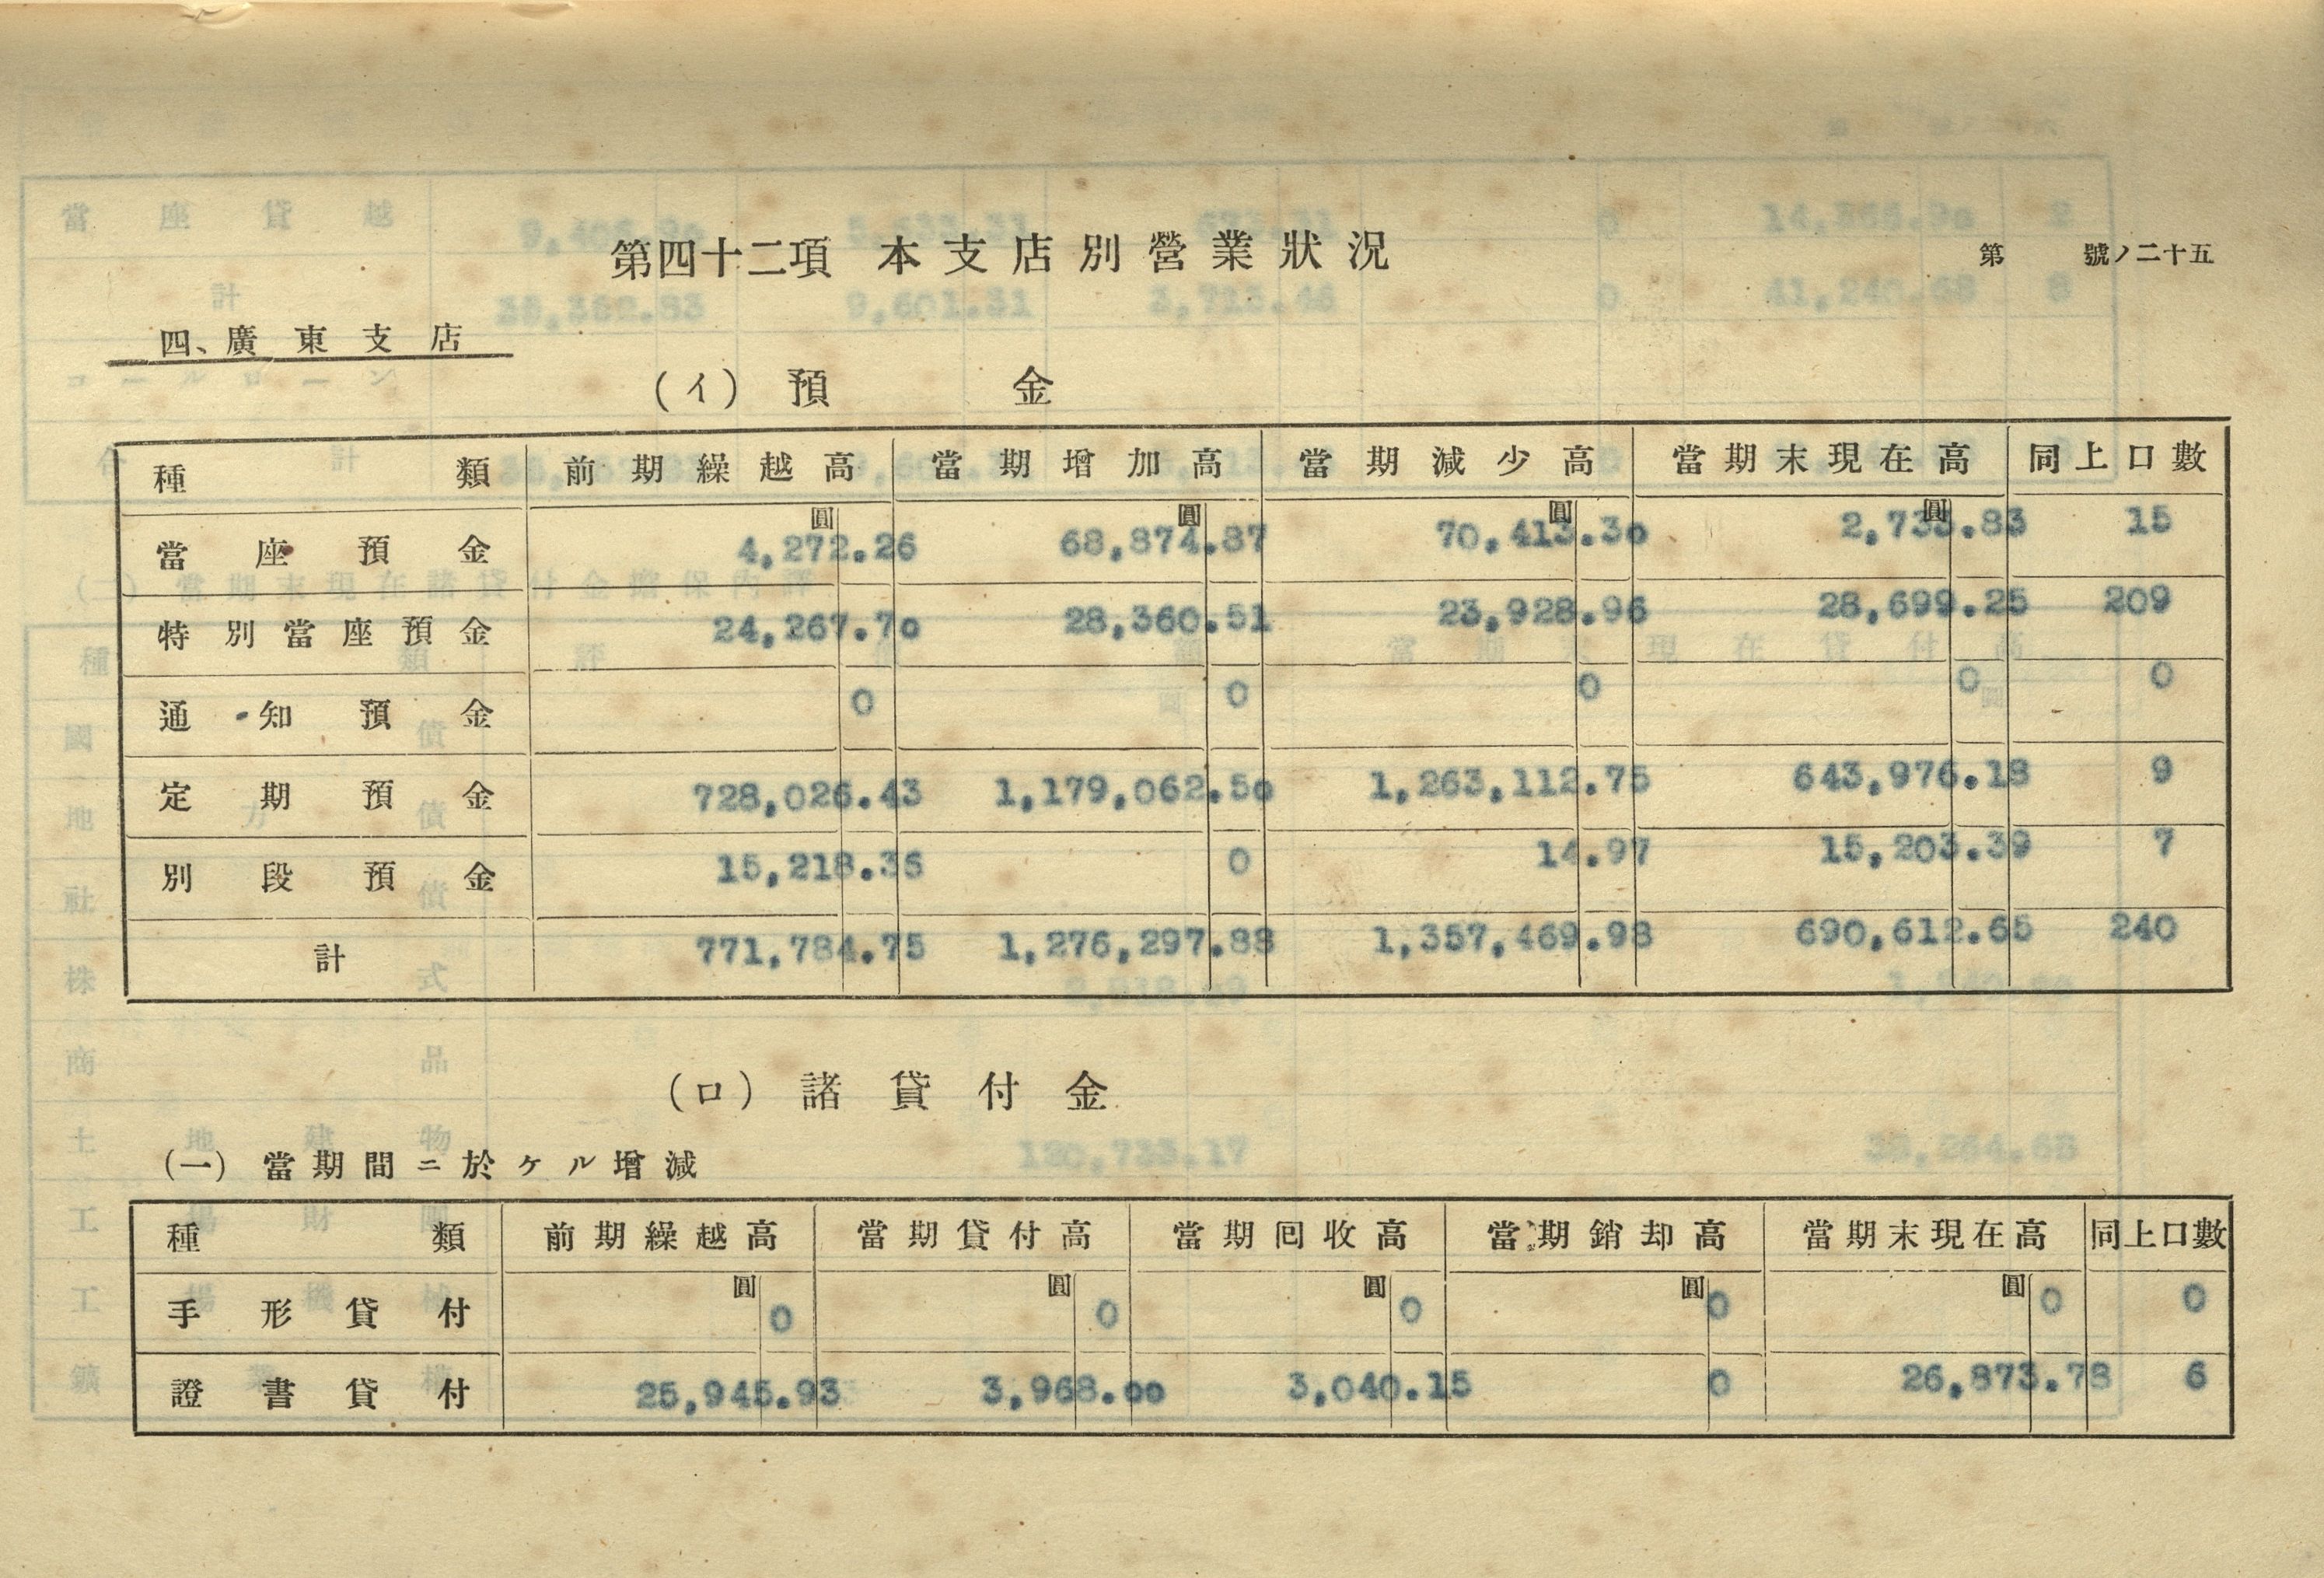 第四十二項 本支店別營業狀況
第 號ノ二十五
四、廣東支店
(イ) 預金
種類 前期繰越高 當期增加高 當期減少高 當期末現在高 同上口數
圓 圓 圓 圓
當座預金 4,272.26 68,874.87 70,413.30 2,733.83 15
特別當座預金 24,267.70 28,360.51 23,928.96 28,699.25 209
通知預金 0 0 0 0 0
定期預金 728,026.43 1,179,062.50 1,263,112.75 643,976.18 9
別段預金 15,218.36 0 14.97 15,203.39 7
計 771,784.75 1,276,297.88 1,357,469.98 690,612.65 240
(ロ) 諸貸付金
(一) 當期間ニ於ケル增減
種類 前期繰越高 當期貸付高 當期囘收高 當期銷却高 當期末現在高 同上口數
圓 圓 圓 圓 圓
手形貸付 0 0 0 0 0 0
證書貸付 25,945.93 3,968.00 3,040.15 0 26,873.78 6